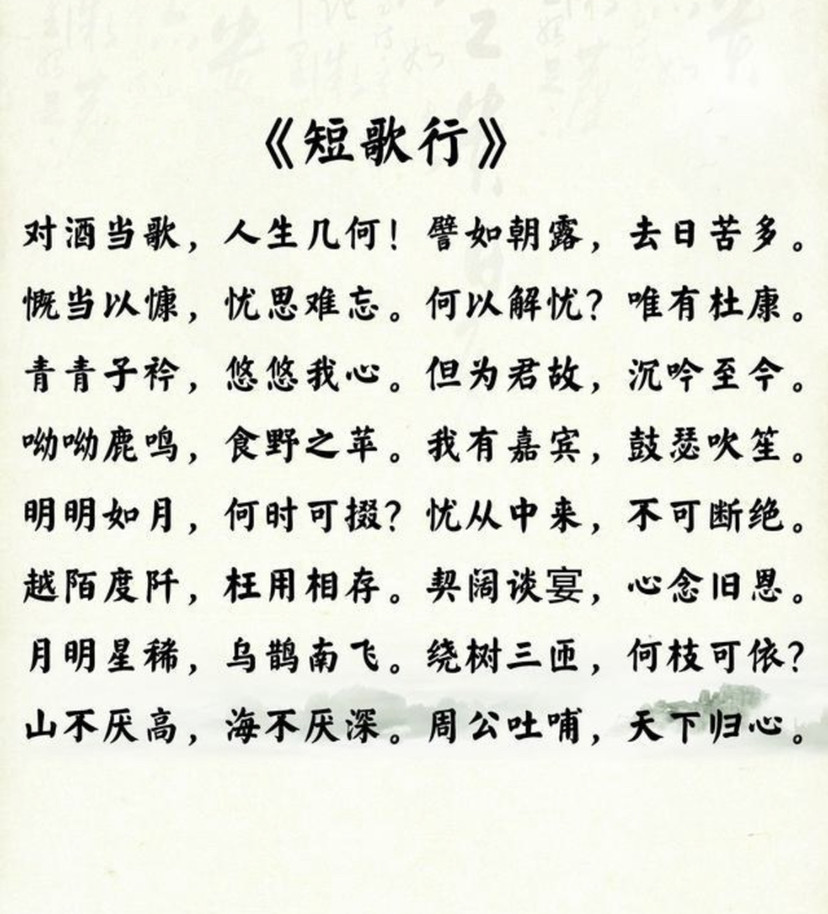 《短歌行》
对酒当歌，人生几何！譬如朝露，去日苦多。
慨当以慷，忧思难忘。何以解忧？唯有杜康。
青青子衿，悠悠我心。但为君故，沉吟至今。
呦呦鹿鸣，食野之苹。我有嘉宾，鼓瑟吹笙。
明明如月，何时可掇？忧从中来，不可断绝。
越陌度阡，枉用相存。契阔谈宴，心念旧恩。
月明星稀，乌鹊南飞。绕树三匝，何枝可依？
山不厌高，海不厌深。周公吐哺，天下归心。